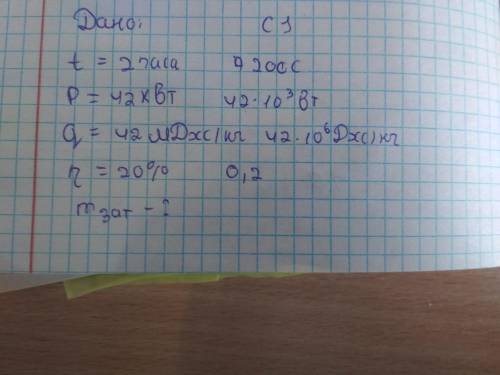 Дано: СИ
t = 2 часа 7200 с
P = 42 кВт 42·10³ Вт
q = 42 МДж/кг 42·10⁶ Дж/кг
η = 20% 0,2
m зат - ?